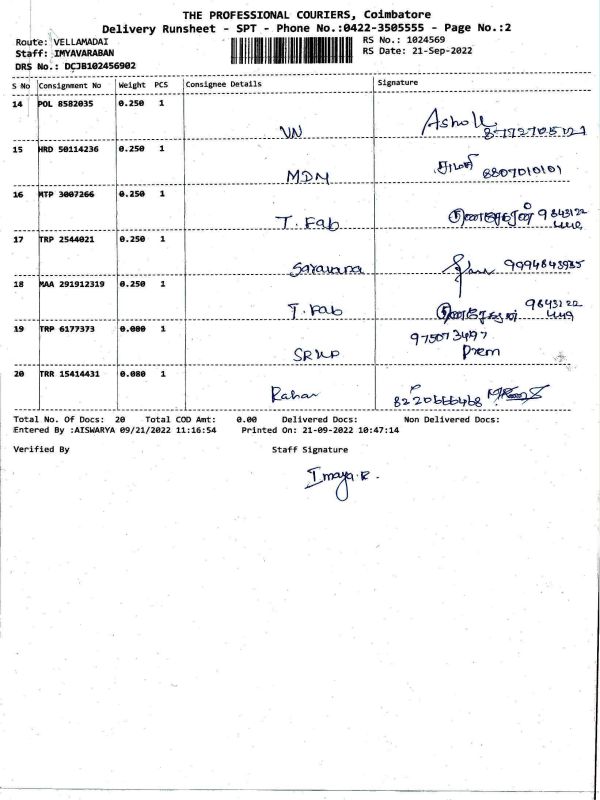 THE PROFESSIONAL COURIERS, Coimbatore
Delivery Runsheet - SPT - Phone No.:0422-3505555 - Page No.:2
Route: VELLAMADAI RS No.: 1024569
Staff: IMYAVARABAN RS Date: 21-Sep-2022
DRS No.: DCJB102456902
S No Consignment No Weight PCS Consignee Details Signature
14 POL 8582035 0.250 1
VN Ashok
15 HRD 50114236 0.250 1
MDM 8807010101
16 MTP 3007266 0.250 1
T. Fab 9843122
17 TRP 2544021 0.250 1
Saravana 9994843985
18 MAA 291912319 0.250 1
T. Fab 9843122
19 TRP 6177373 0.080 1 975073497
SRKP Prem
20 TRR 15414431 0.080 1
Total No. Of Docs: 20 Total COD Amt: 0.00 Delivered Docs: Non Delivered Docs:
Entered By :AISWARYA 09/21/2022 11:16:54 Printed On: 21-09-2022 10:47:14
Verified By Staff Signature
Imaya.R.